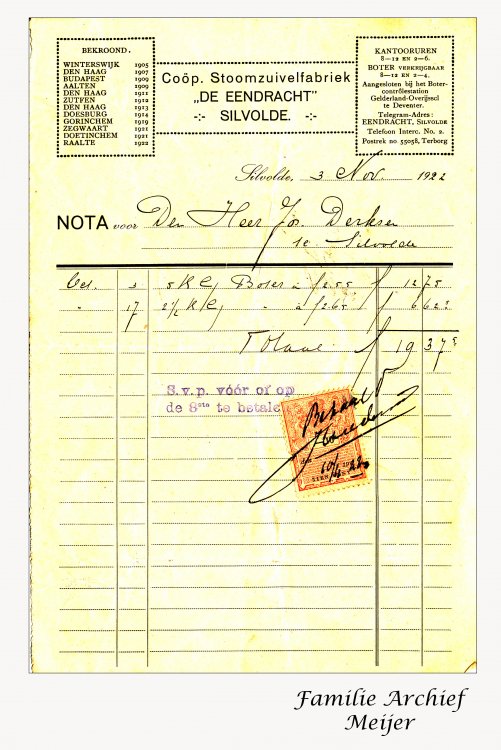 BEKROOND.
WINTERSWIJK 1905
DEN HAAG 1907
BUDAPEST 1909
AALTEN 1909
DEN HAAG 1911
ZUTFEN 1912
DOESBURG 1913
GORINCHEM 1914
ZEGWAART 1921
DOETINCHEM 1921
RAALTE 1922
Coöp. Stoomzuivelfabriek
„DE EENDRACHT"
-:- SILVOLDE. -:-
KANTOORUREN
8—12 EN 2—6.
BOTER VERKRIJGBAAR
8—12 EN 2—4.
Aangesloten bij het Boter-
contrôlestation
Gelderland-Overijssel
te Deventer.
Telegram-Adres:
EENDRACHT, SILVOLDE
Telefoon Interc. No. 2.
Postrek no 55058, Terborg
Silvolde, 3 Nov. 1922
NOTA voor Den Heer Joh. Derksen
te Silvolde
Oct. 3 5 KG Boter à f 2.55 f 12 75
" 17 2½ KG " à f 2.65 f 6 62⁵
Totaal f 19 37⁵
S.v.p. vóór of op
de 8ste te betalen
Betaald
Familie Archief
Meijer